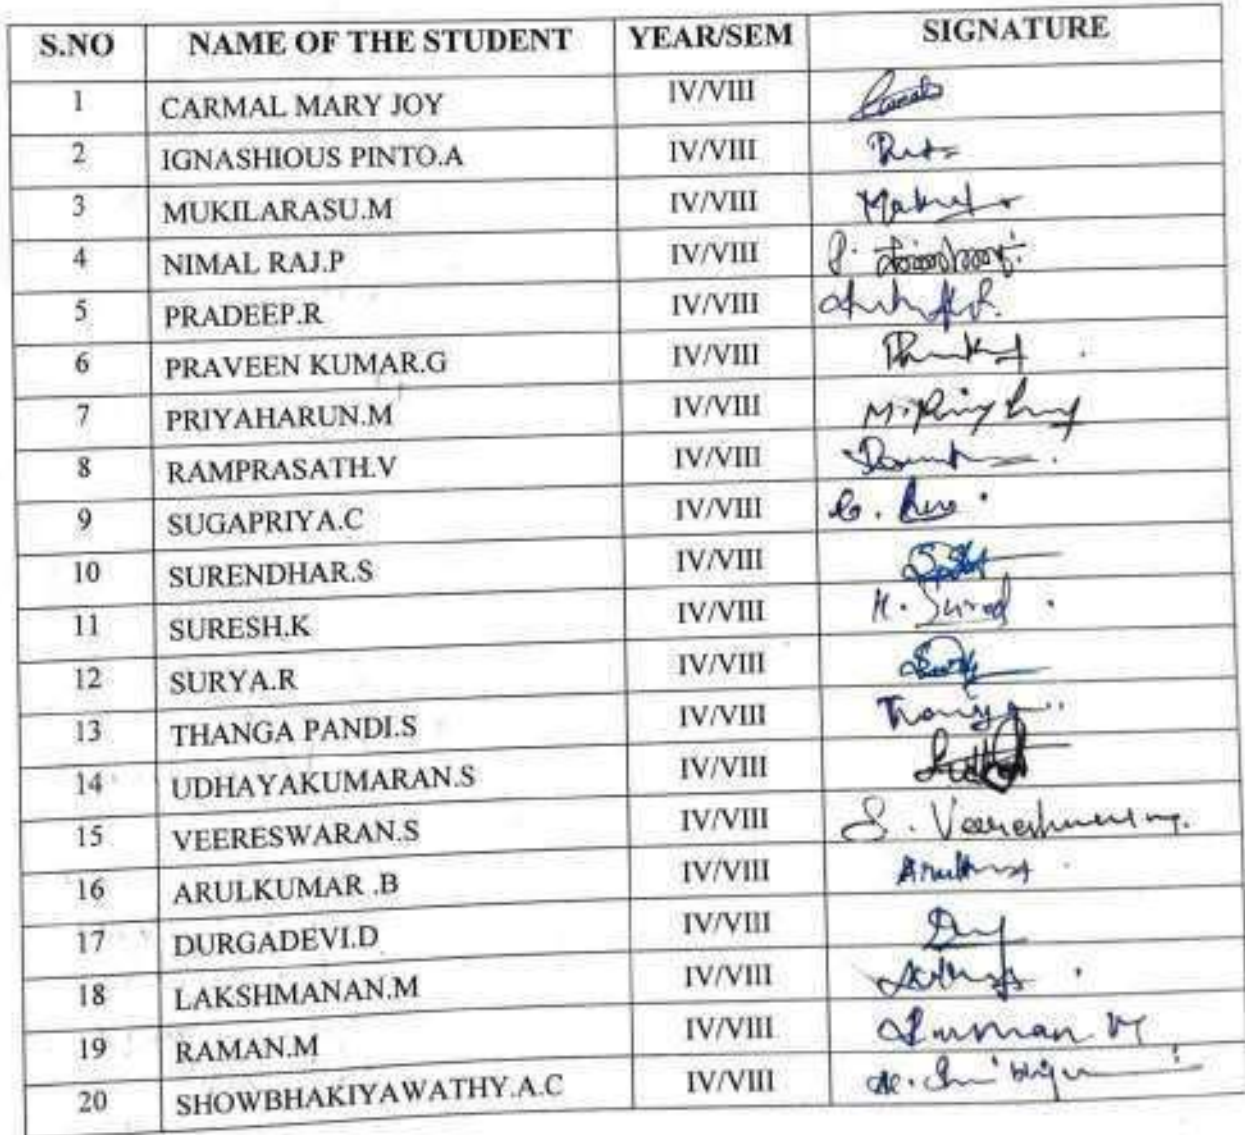 S.NO NAME OF THE STUDENT YEAR/SEM SIGNATURE
1 CARMAL MARY JOY IV/VIII
2 IGNASHIOUS PINTO.A IV/VIII
3 MUKILARASU.M IV/VIII
4 NIMAL RAJ.P IV/VIII
5 PRADEEP.R IV/VIII
6 PRAVEEN KUMAR.G IV/VIII
7 PRIYAHARUN.M IV/VIII
8 RAMPRASATH.V IV/VIII
9 SUGAPRIYA.C IV/VIII
10 SURENDHAR.S IV/VIII
11 SURESH.K IV/VIII
12 SURYA.R IV/VIII
13 THANGA PANDI.S IV/VIII
14 UDHAYAKUMARAN.S IV/VIII
15 VEERESWARAN.S IV/VIII
16 ARULKUMAR .B IV/VIII
17 DURGADEVI.D IV/VIII
18 LAKSHMANAN.M IV/VIII
19 RAMAN.M IV/VIII
20 SHOWBHAKIYAWATHY.A.C IV/VIII